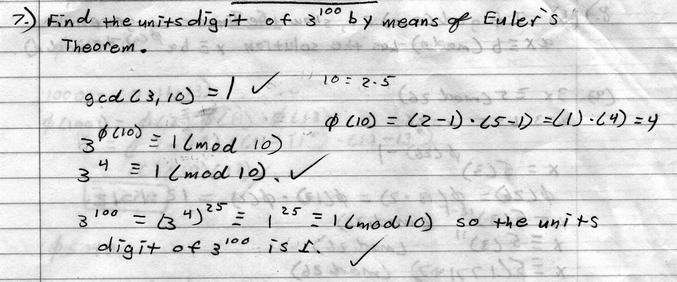 7.) Find the units digit of 3^100 by means of Euler's
Theorem.
gcd(3,10) = 1 ✓ 10 = 2·5
φ(10) = (2-1)·(5-1) = (1)·(4) = 4
3^φ(10) ≡ 1 (mod 10)
3^4 ≡ 1 (mod 10). ✓
3^100 = (3^4)^25 ≡ 1^25 ≡ 1 (mod 10) so the units
digit of 3^100 is 1. ✓